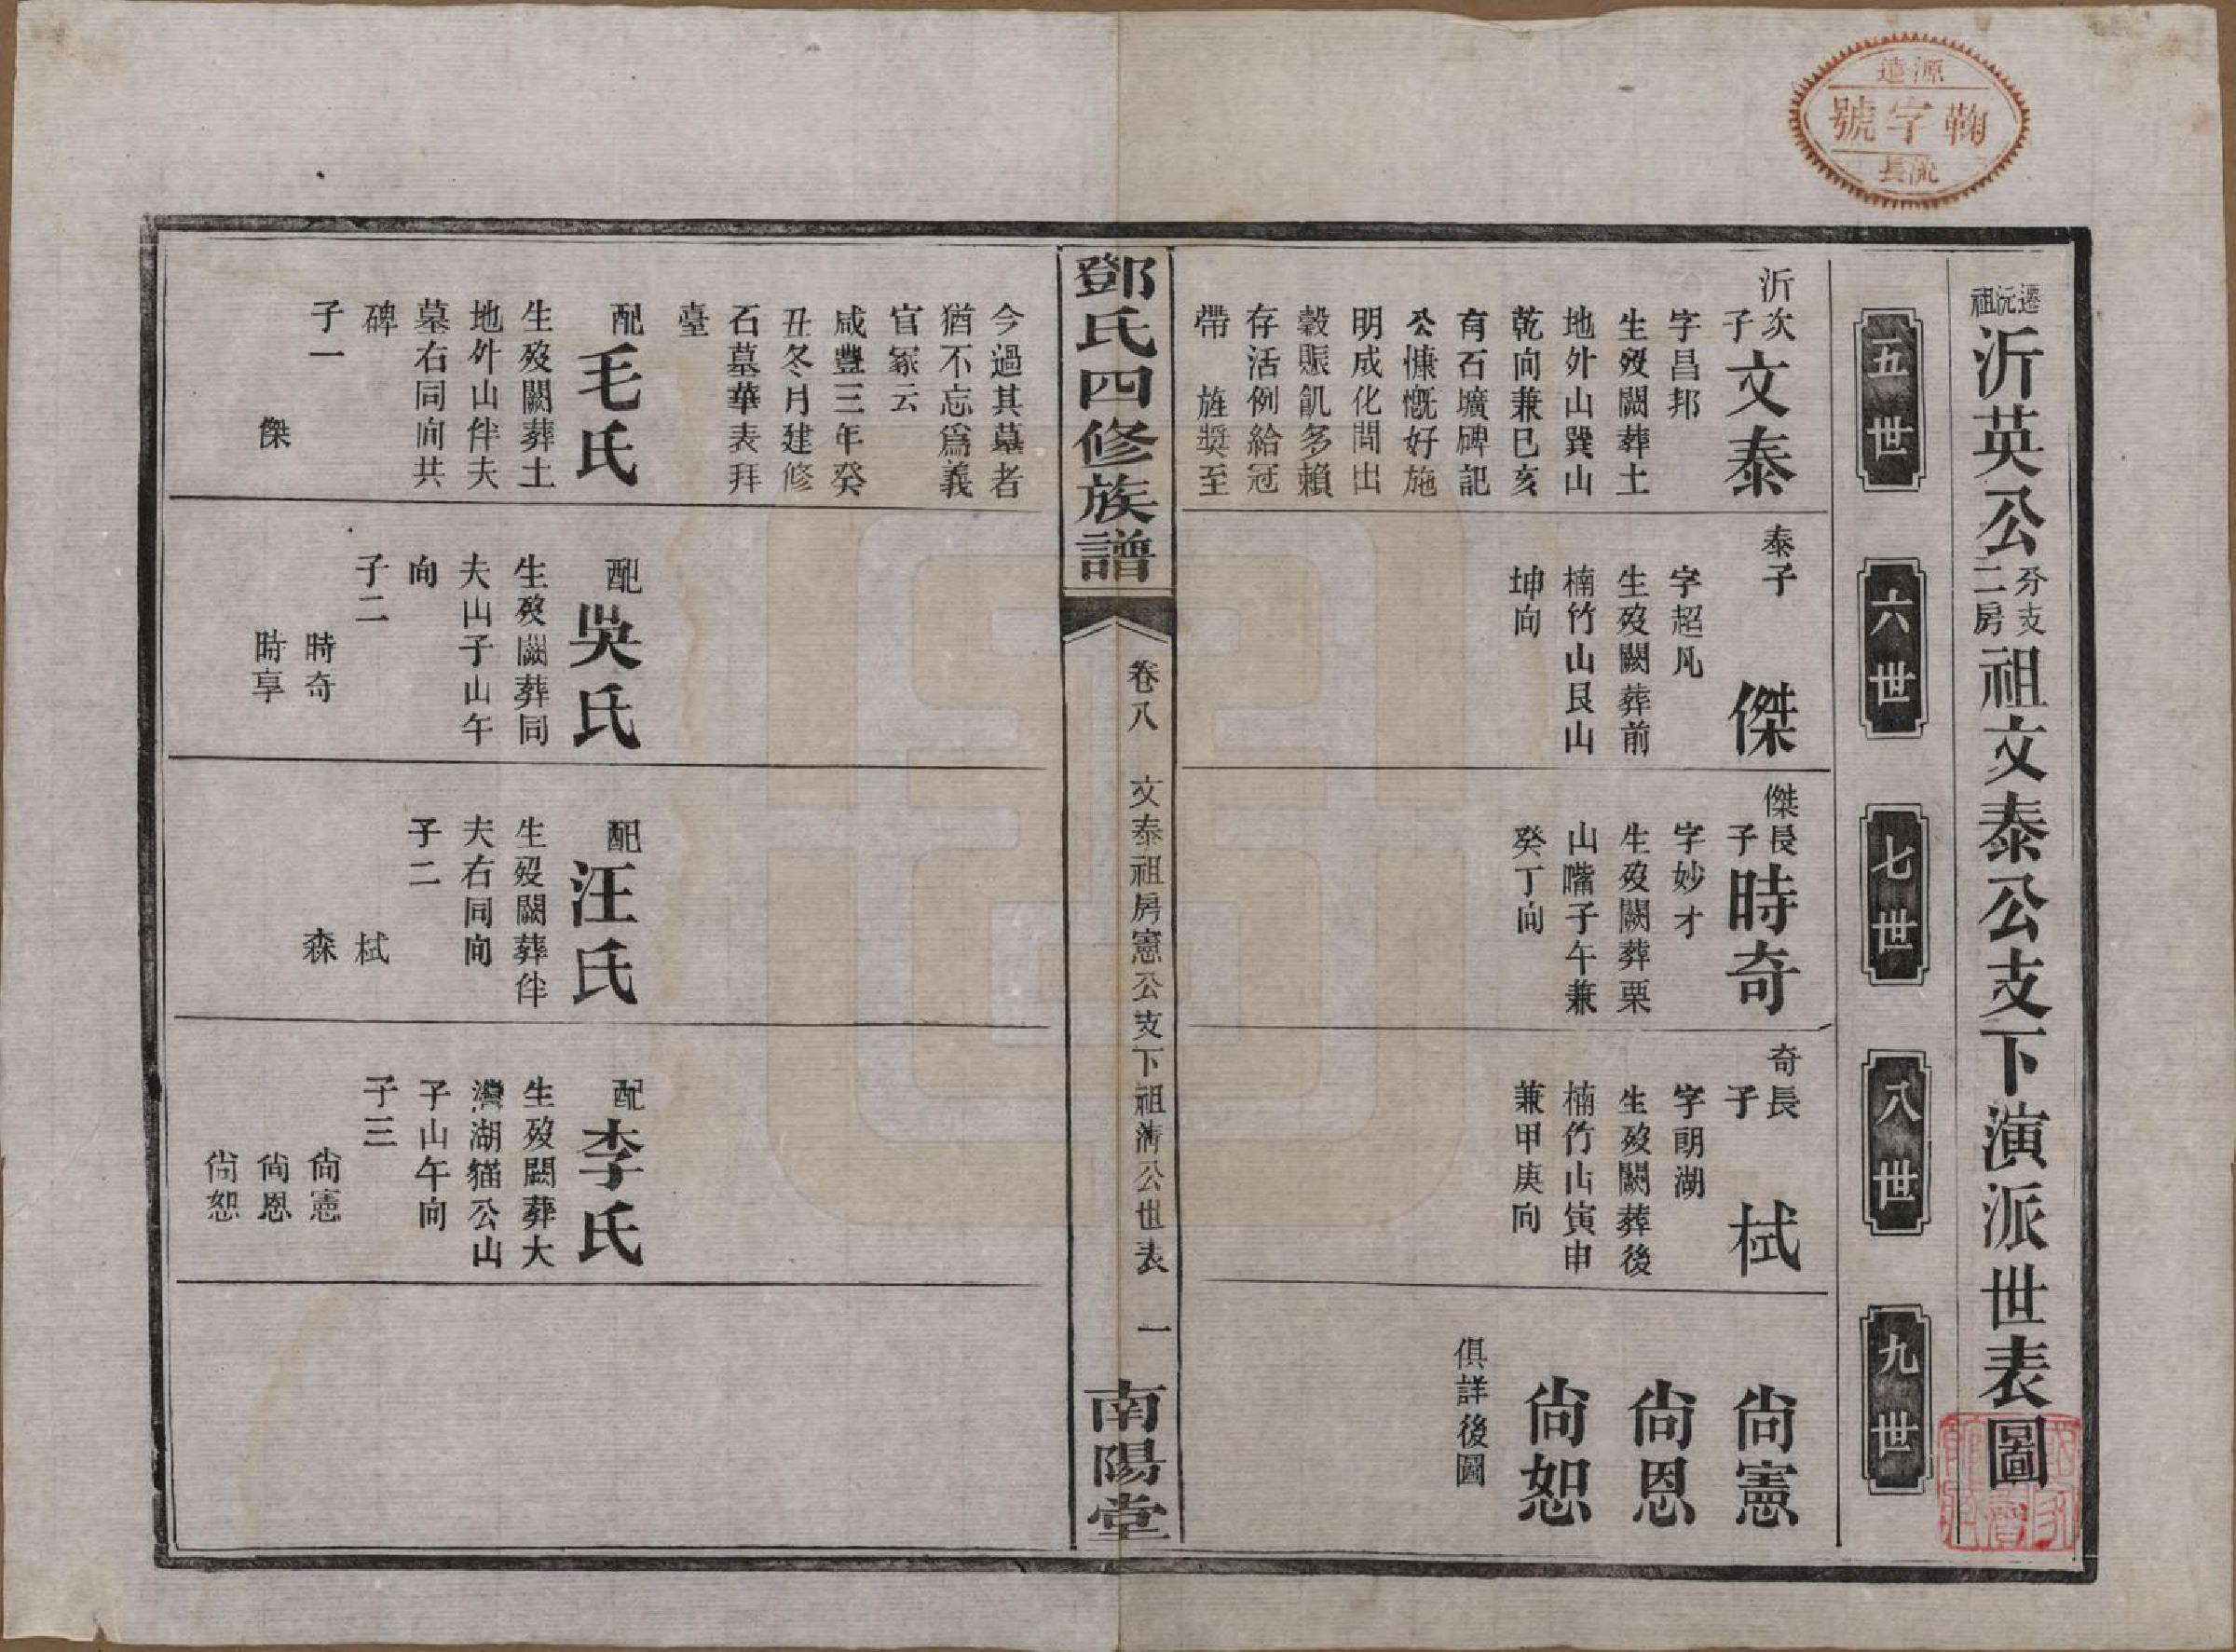 源遠
鞠字號
流長
遷沅祖沂英公分支二房祖文泰公支下演派世表圖
五世
六世
七世
八世
九世
沂次子文泰
字昌邦
生歿闕葬土
地外山巽山
乾向兼巳亥
有石壙碑記
公慷慨好施
明成化間出
穀賑飢多賴
存活例給冠
帶　旌獎至
泰子　傑
字超凡
生歿闕葬前
楠竹山艮山
坤向
傑長子時奇
字妙才
生歿闕葬栗
山嘴子午兼
癸丁向
奇長子　栻
字朗湖
生歿闕葬後
楠竹山寅申
兼甲庚向
尙憲
尙恩
尙恕
俱詳後圖
鄧氏四修族譜
卷八　文泰祖房憲公支下祖濤公世表　一
南陽堂
今過其墓者
猶不忘爲義
官冢云
咸豐三年癸
丑冬月建修
石墓華表拜
臺
配毛氏
生歿闕葬土
地外山伴夫
墓右同向共
碑
子一
傑
配吳氏
生歿闕葬同
夫山子山午
向
子二
時奇
時享
配汪氏
生歿闕葬伴
夫右同向
子二
栻
森
配李氏
生歿闕葬大
灣湖貓公山
子山午向
子三
尙憲
尙恩
尙恕